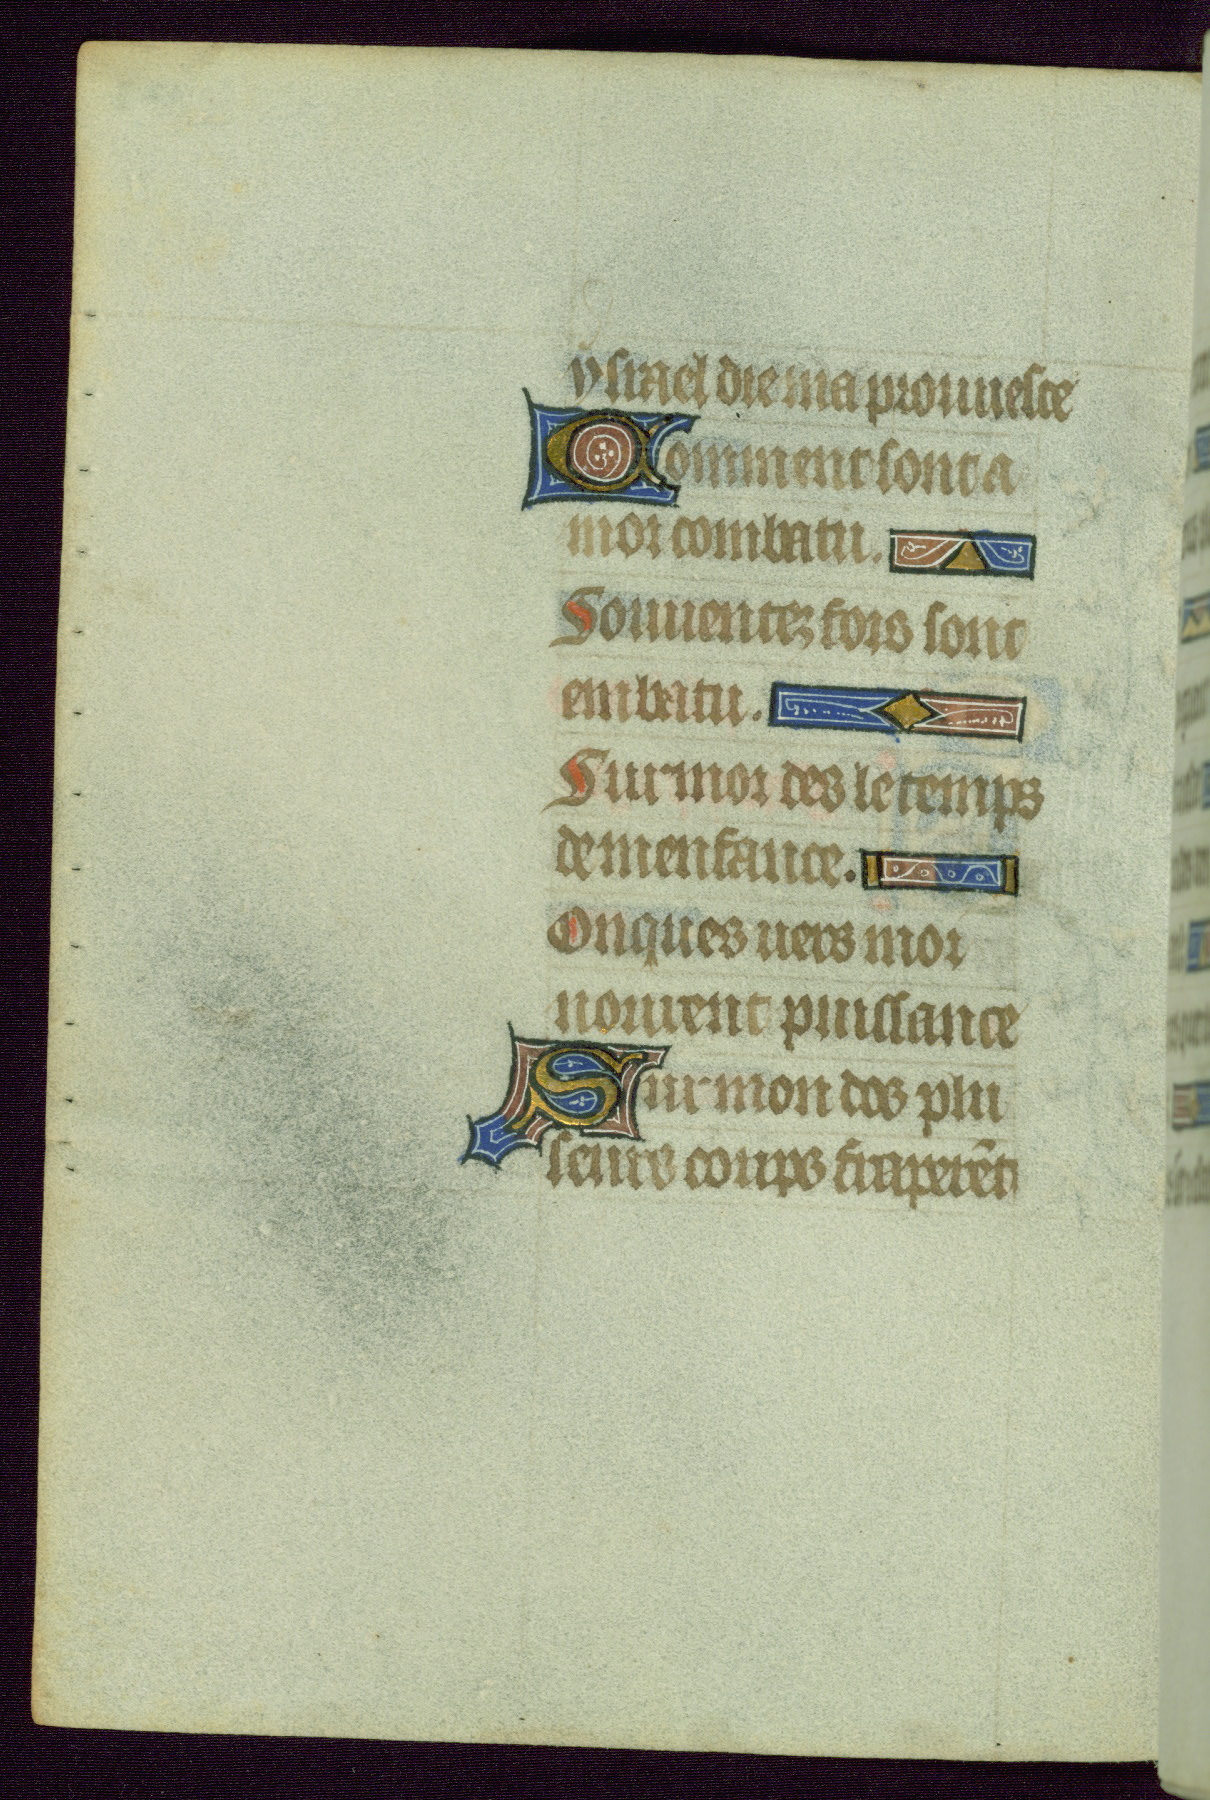 ysrael die ma prouuesce
Comment sont a
moi combatu.
Souuentez fois sont
embatu.
Sur moi des le temps
de menfance.
Onques uers moi
norent puissance
Sur mon dos plu
seurs coups fraperēt